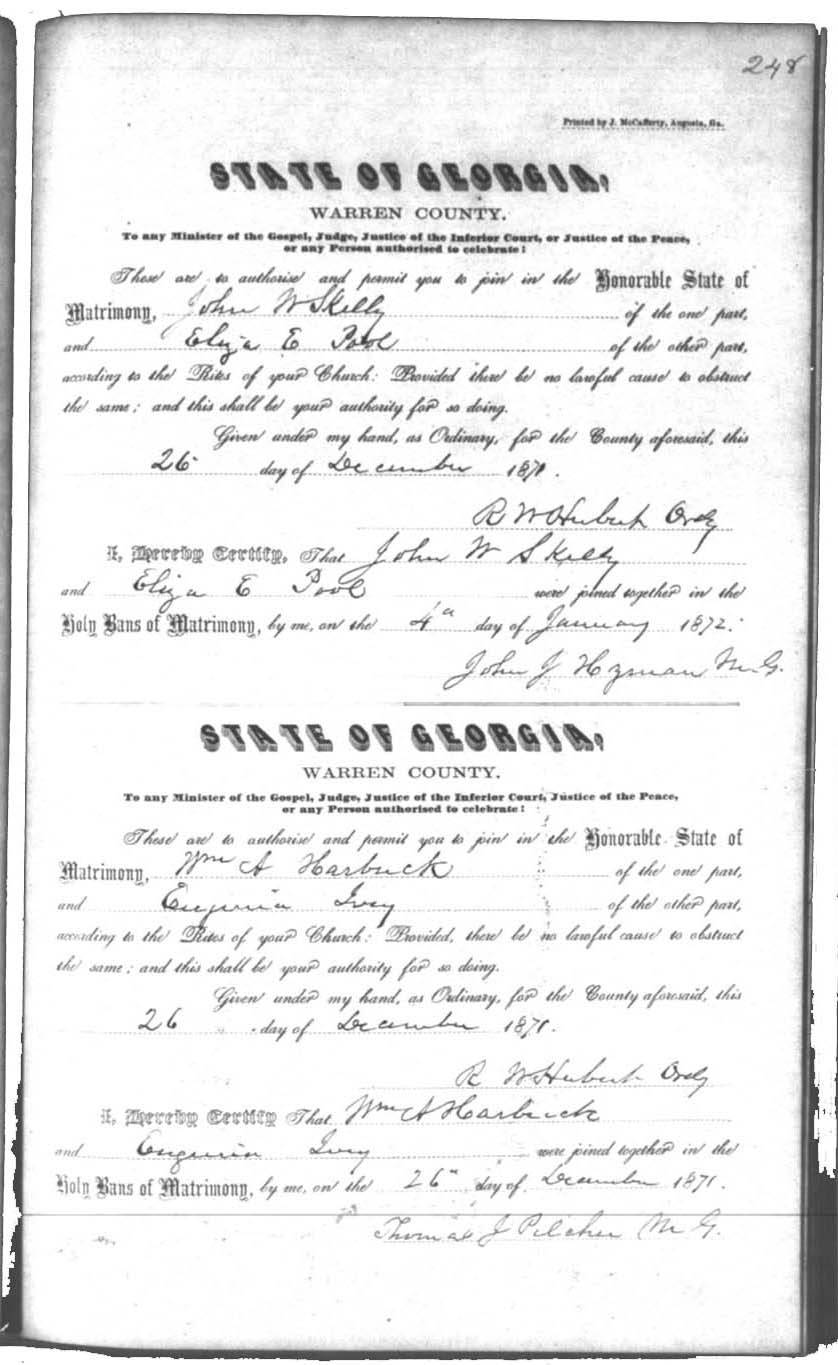 248
Printed by J. McCafferty, Augusta, Ga.
STATE OF GEORGIA,
WARREN COUNTY.
To any Minister of the Gospel, Judge, Justice of the Inferior Court, or Justice of the Peace,
or any Person authorised to celebrate:
These are to authorise and permit you to join in the Honorable State of
Matrimony, John W Skelly of the one part,
and Eliza E Pool of the other part,
according to the Rites of your Church: Provided there be no lawful cause to obstruct
the same; and this shall be your authority for so doing.
Given under my hand, as Ordinary, for the County aforesaid, this
26 day of December 1871.
R W Hubert Ordy
I, Hereby Certify, That John W Skelly
and Eliza E Pool were joined together in the
Holy Bans of Matrimony, by me, on the 4" day of January 1872.
John J Hyman M.G.
STATE OF GEORGIA,
WARREN COUNTY.
To any Minister of the Gospel, Judge, Justice of the Inferior Court, Justice of the Peace,
or any Person authorised to celebrate:
These are to authorise and permit you to join in the Honorable State of
Matrimony, Wm A Harbuck of the one part,
and Eugenia Ivey of the other part,
according to the Rites of your Church: Provided, there be no lawful cause to obstruct
the same; and this shall be your authority for so doing.
Given under my hand, as Ordinary, for the County aforesaid, this
26 day of December 1871.
R W Hubert Ordy
I, Hereby Certify That Wm A Harbuck
and Eugenia Ivey were joined together in the
Holy Bans of Matrimony, by me, on the 26" day of December 1871.
Thomas J Pilcher M G.